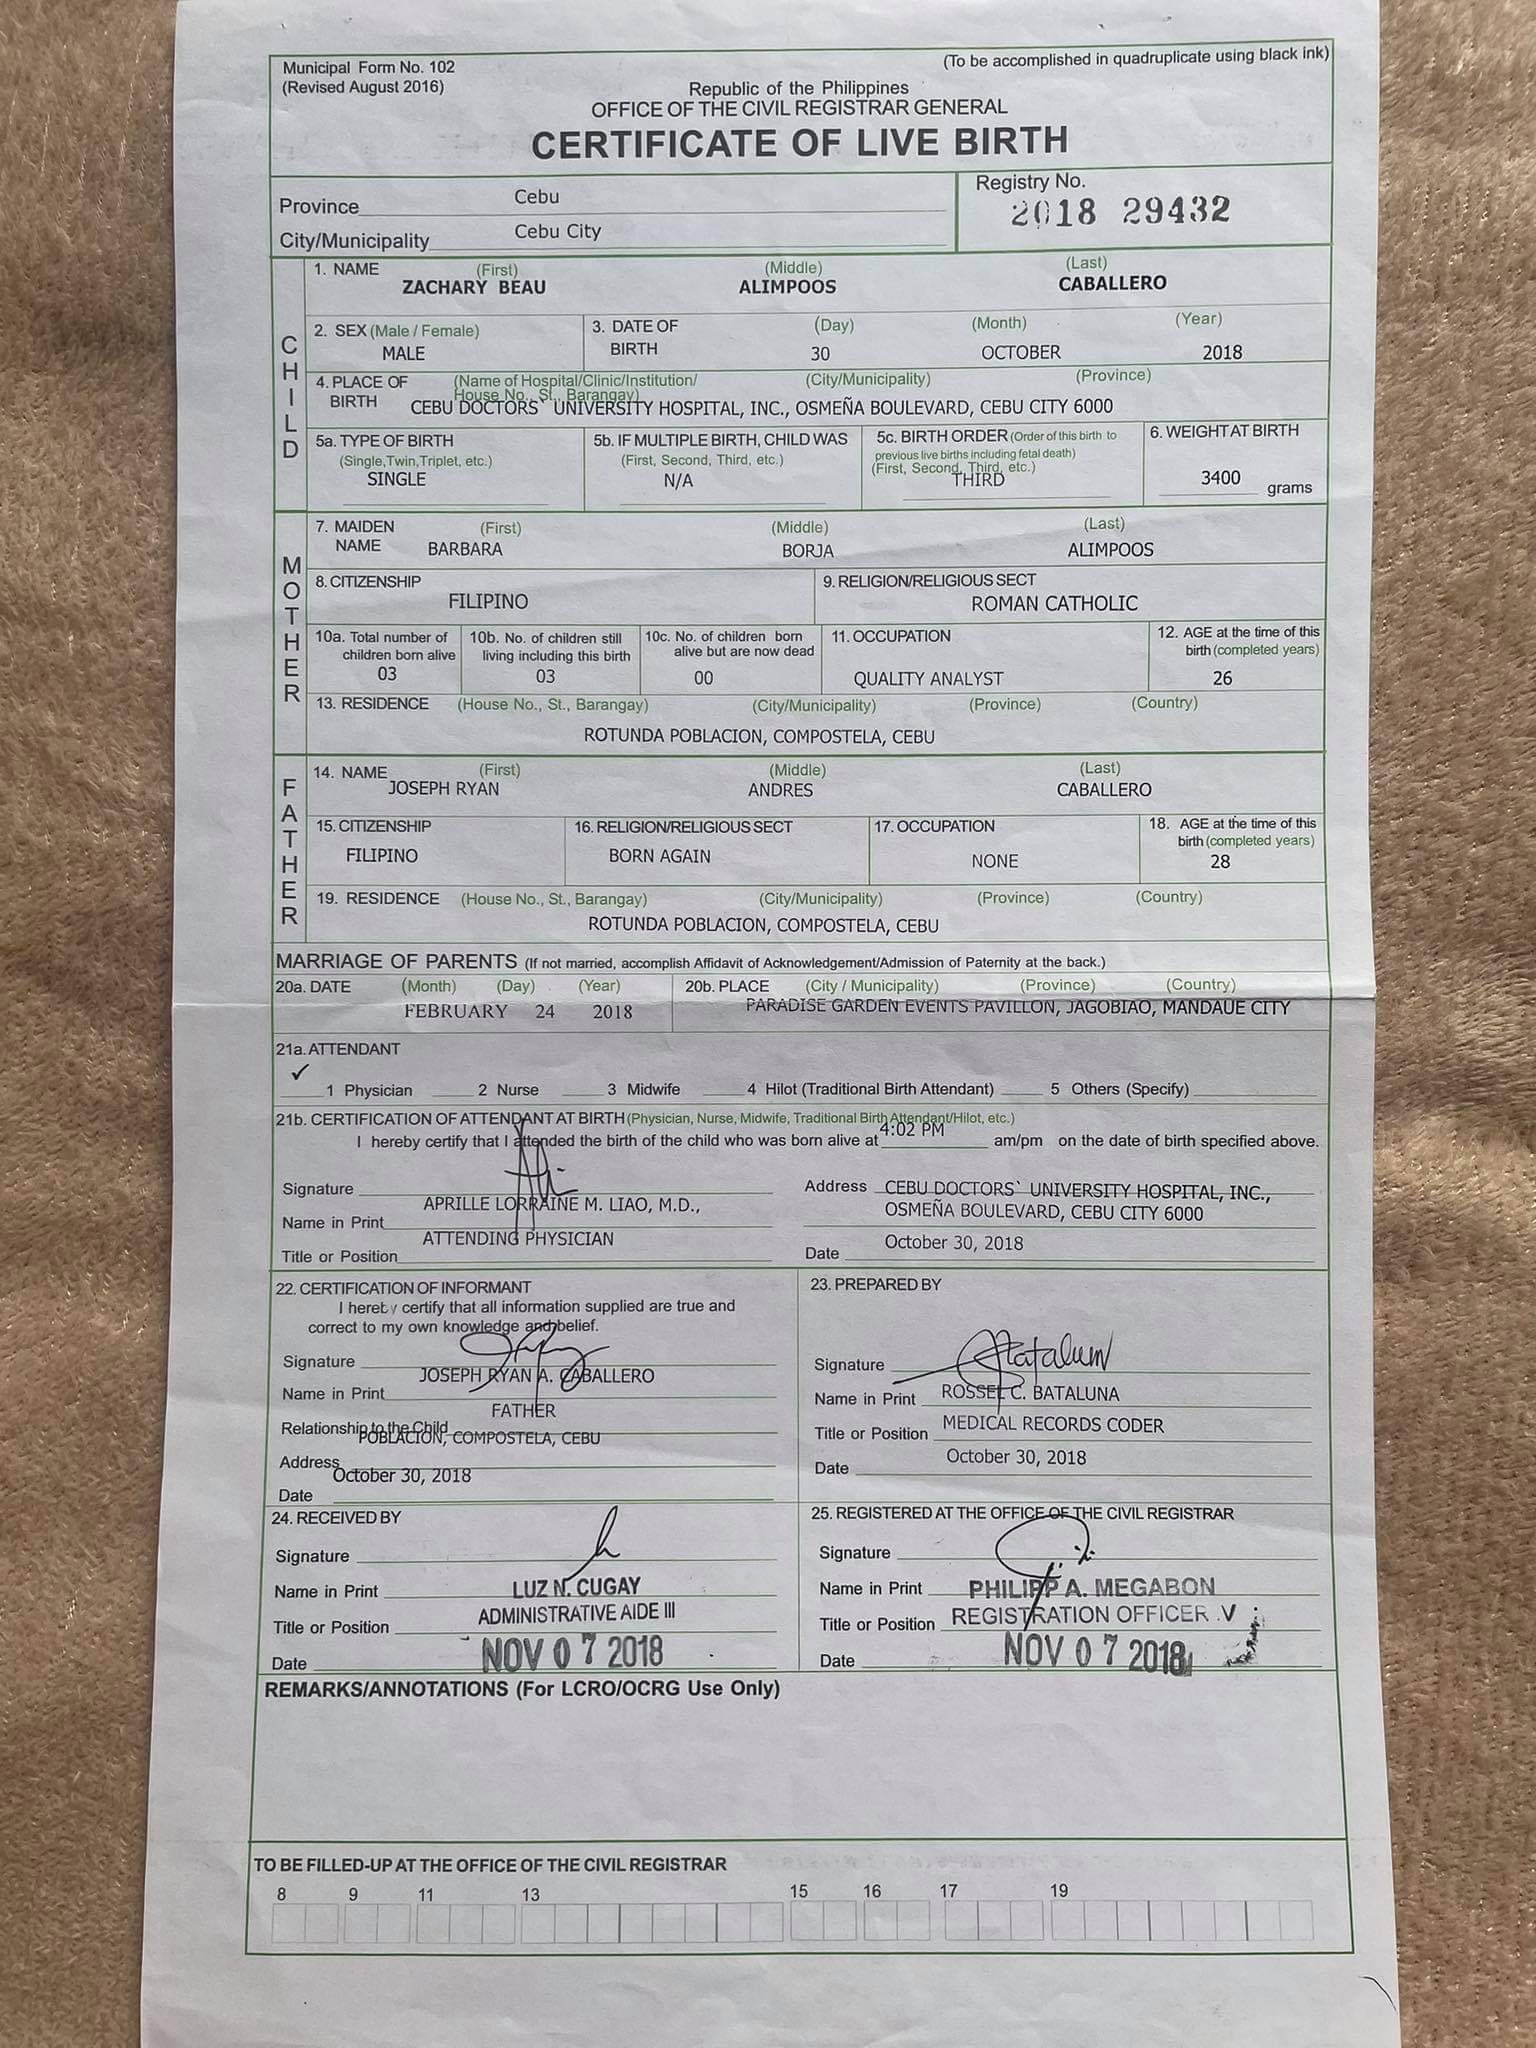 Municipal Form No. 102
(Revised August 2016)
(To be accomplished in quadruplicate using black ink)
Republic of the Philippines
OFFICE OF THE CIVIL REGISTRAR GENERAL
CERTIFICATE OF LIVE BIRTH
Province Cebu
City/Municipality Cebu City
Registry No.
2018 29432
CHILD
1. NAME (First) (Middle) (Last)
ZACHARY BEAU ALIMPOOS CABALLERO
2. SEX (Male / Female) 3. DATE OF BIRTH (Day) (Month) (Year)
MALE 30 OCTOBER 2018
4. PLACE OF BIRTH (Name of Hospital/Clinic/Institution/ House No., St., Barangay) (City/Municipality) (Province)
CEBU DOCTORS` UNIVERSITY HOSPITAL, INC., OSMEÑA BOULEVARD, CEBU CITY 6000
5a. TYPE OF BIRTH (Single,Twin,Triplet, etc.)
SINGLE
5b. IF MULTIPLE BIRTH, CHILD WAS (First, Second, Third, etc.)
N/A
5c. BIRTH ORDER (Order of this birth to previous live births including fetal death) (First, Second, Third, etc.)
THIRD
6. WEIGHT AT BIRTH
3400 grams
MOTHER
7. MAIDEN NAME (First) (Middle) (Last)
BARBARA BORJA ALIMPOOS
8. CITIZENSHIP
FILIPINO
9. RELIGION/RELIGIOUS SECT
ROMAN CATHOLIC
10a. Total number of children born alive
03
10b. No. of children still living including this birth
03
10c. No. of children born alive but are now dead
00
11. OCCUPATION
QUALITY ANALYST
12. AGE at the time of this birth (completed years)
26
13. RESIDENCE (House No., St., Barangay) (City/Municipality) (Province) (Country)
ROTUNDA POBLACION, COMPOSTELA, CEBU
FATHER
14. NAME (First) (Middle) (Last)
JOSEPH RYAN ANDRES CABALLERO
15. CITIZENSHIP
FILIPINO
16. RELIGION/RELIGIOUS SECT
BORN AGAIN
17. OCCUPATION
NONE
18. AGE at the time of this birth (completed years)
28
19. RESIDENCE (House No., St., Barangay) (City/Municipality) (Province) (Country)
ROTUNDA POBLACION, COMPOSTELA, CEBU
MARRIAGE OF PARENTS (If not married, accomplish Affidavit of Acknowledgement/Admission of Paternity at the back.)
20a. DATE (Month) (Day) (Year)
FEBRUARY 24 2018
20b. PLACE (City / Municipality) (Province) (Country)
PARADISE GARDEN EVENTS PAVILLON, JAGOBIAO, MANDAUE CITY
21a. ATTENDANT
✓ 1 Physician 2 Nurse 3 Midwife 4 Hilot (Traditional Birth Attendant) 5 Others (Specify)
21b. CERTIFICATION OF ATTENDANT AT BIRTH (Physician, Nurse, Midwife, Traditional Birth Attendant/Hilot, etc.)
I hereby certify that I attended the birth of the child who was born alive at 4:02 PM am/pm on the date of birth specified above.
Signature
Name in Print APRILLE LORRAINE M. LIAO, M.D.,
Title or Position ATTENDING PHYSICIAN
Address CEBU DOCTORS` UNIVERSITY HOSPITAL, INC.,
OSMEÑA BOULEVARD, CEBU CITY 6000
Date October 30, 2018
22. CERTIFICATION OF INFORMANT
I hereby certify that all information supplied are true and
correct to my own knowledge and belief.
Signature
Name in Print JOSEPH RYAN A. CABALLERO
Relationship to the Child FATHER
Address POBLACION, COMPOSTELA, CEBU
Date October 30, 2018
23. PREPARED BY
Signature
Name in Print ROSSEL C. BATALUNA
Title or Position MEDICAL RECORDS CODER
Date October 30, 2018
24. RECEIVED BY
Signature
Name in Print LUZ N. CUGAY
Title or Position ADMINISTRATIVE AIDE III
Date NOV 07 2018
25. REGISTERED AT THE OFFICE OF THE CIVIL REGISTRAR
Signature
Name in Print PHILIPP A. MEGABON
Title or Position REGISTRATION OFFICER V
Date NOV 07 2018
REMARKS/ANNOTATIONS (For LCRO/OCRG Use Only)
TO BE FILLED-UP AT THE OFFICE OF THE CIVIL REGISTRAR
8 9 11 13 15 16 17 19